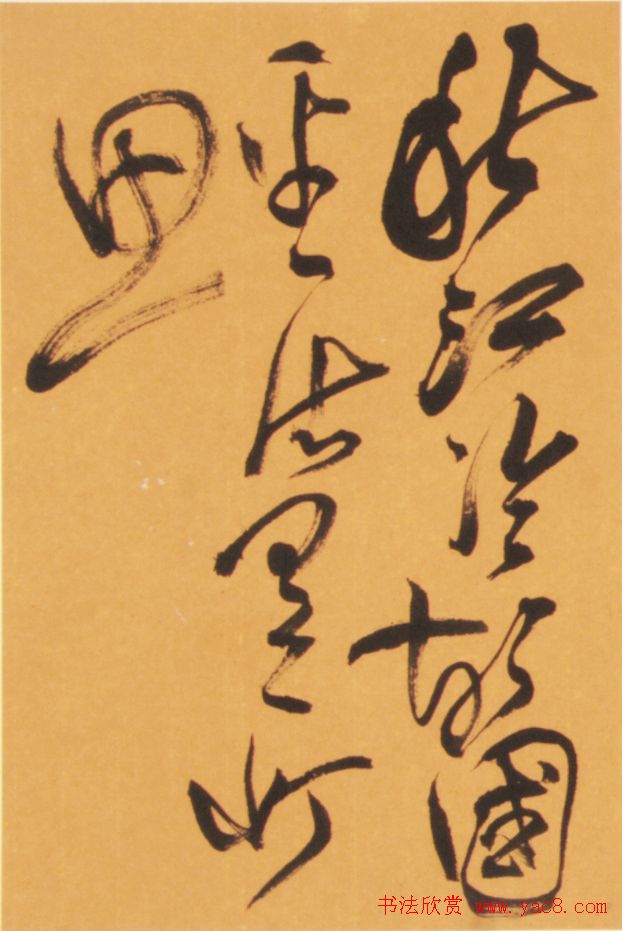 秋江冷故國
平居有所
思
书法欣赏 www.yac8.com